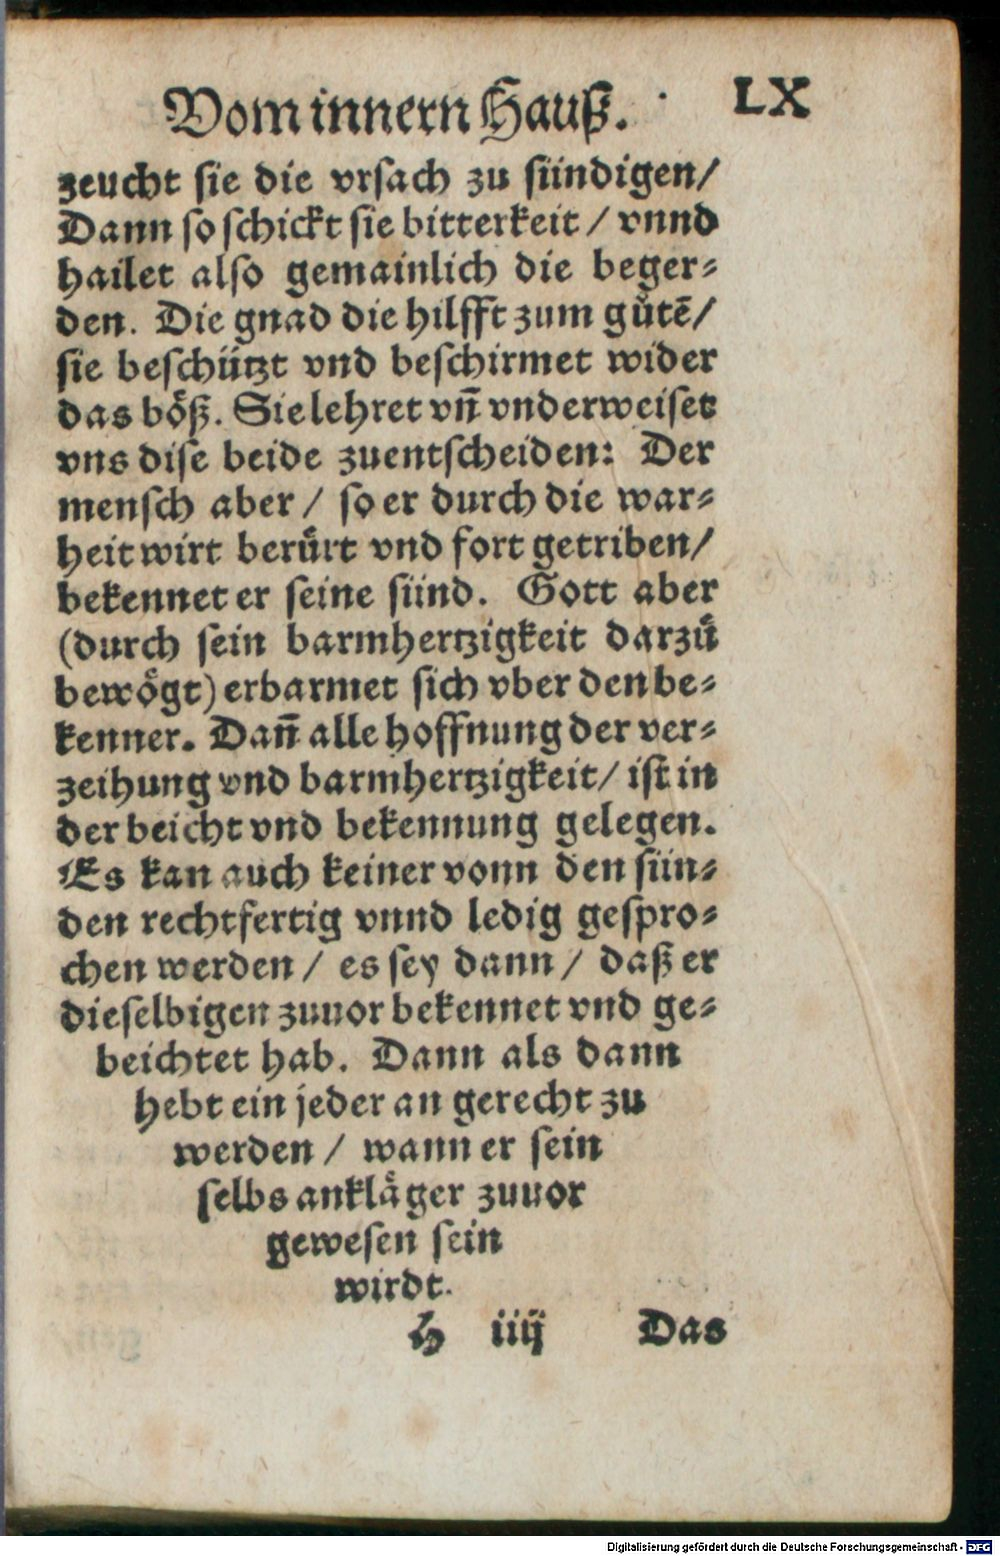 Vom innern Hauß. LX
zeucht sie die vrsach zu sündigen/
Dann so schickt sie bitterkeit / vnnd
hailet also gemainlich die beger-
den. Die gnad die hilfft zum gůtē/
sie beschützt vnd beschirmet wider
das böß. Sie lehret vn̄ vnderweiset
vns dise beide zuentscheiden: Der
mensch aber / so er durch die war-
heit wirt berůrt vnd fort getriben/
bekennet er seine sünd. Gott aber
(durch sein barmhertzigkeit darzů
bewögt) erbarmet sich vber den be-
kenner. Dan̄ alle hoffnung der ver-
zeihung vnd barmhertzigkeit/ ist in
der beicht vnd bekennung gelegen.
Es kan auch keiner vonn den sün-
den rechtfertig vnnd ledig gespro-
chen werden / es sey dann / daß er
dieselbigen zuuor bekennet vnd ge-
beichtet hab. Dann als dann
hebt ein jeder an gerecht zu
werden / wann er sein
selbs ankläger zuuor
gewesen sein
wirdt.
H iiij Das
Digitalisierung gefördert durch die Deutsche Forschungsgemeinschaft - DFG